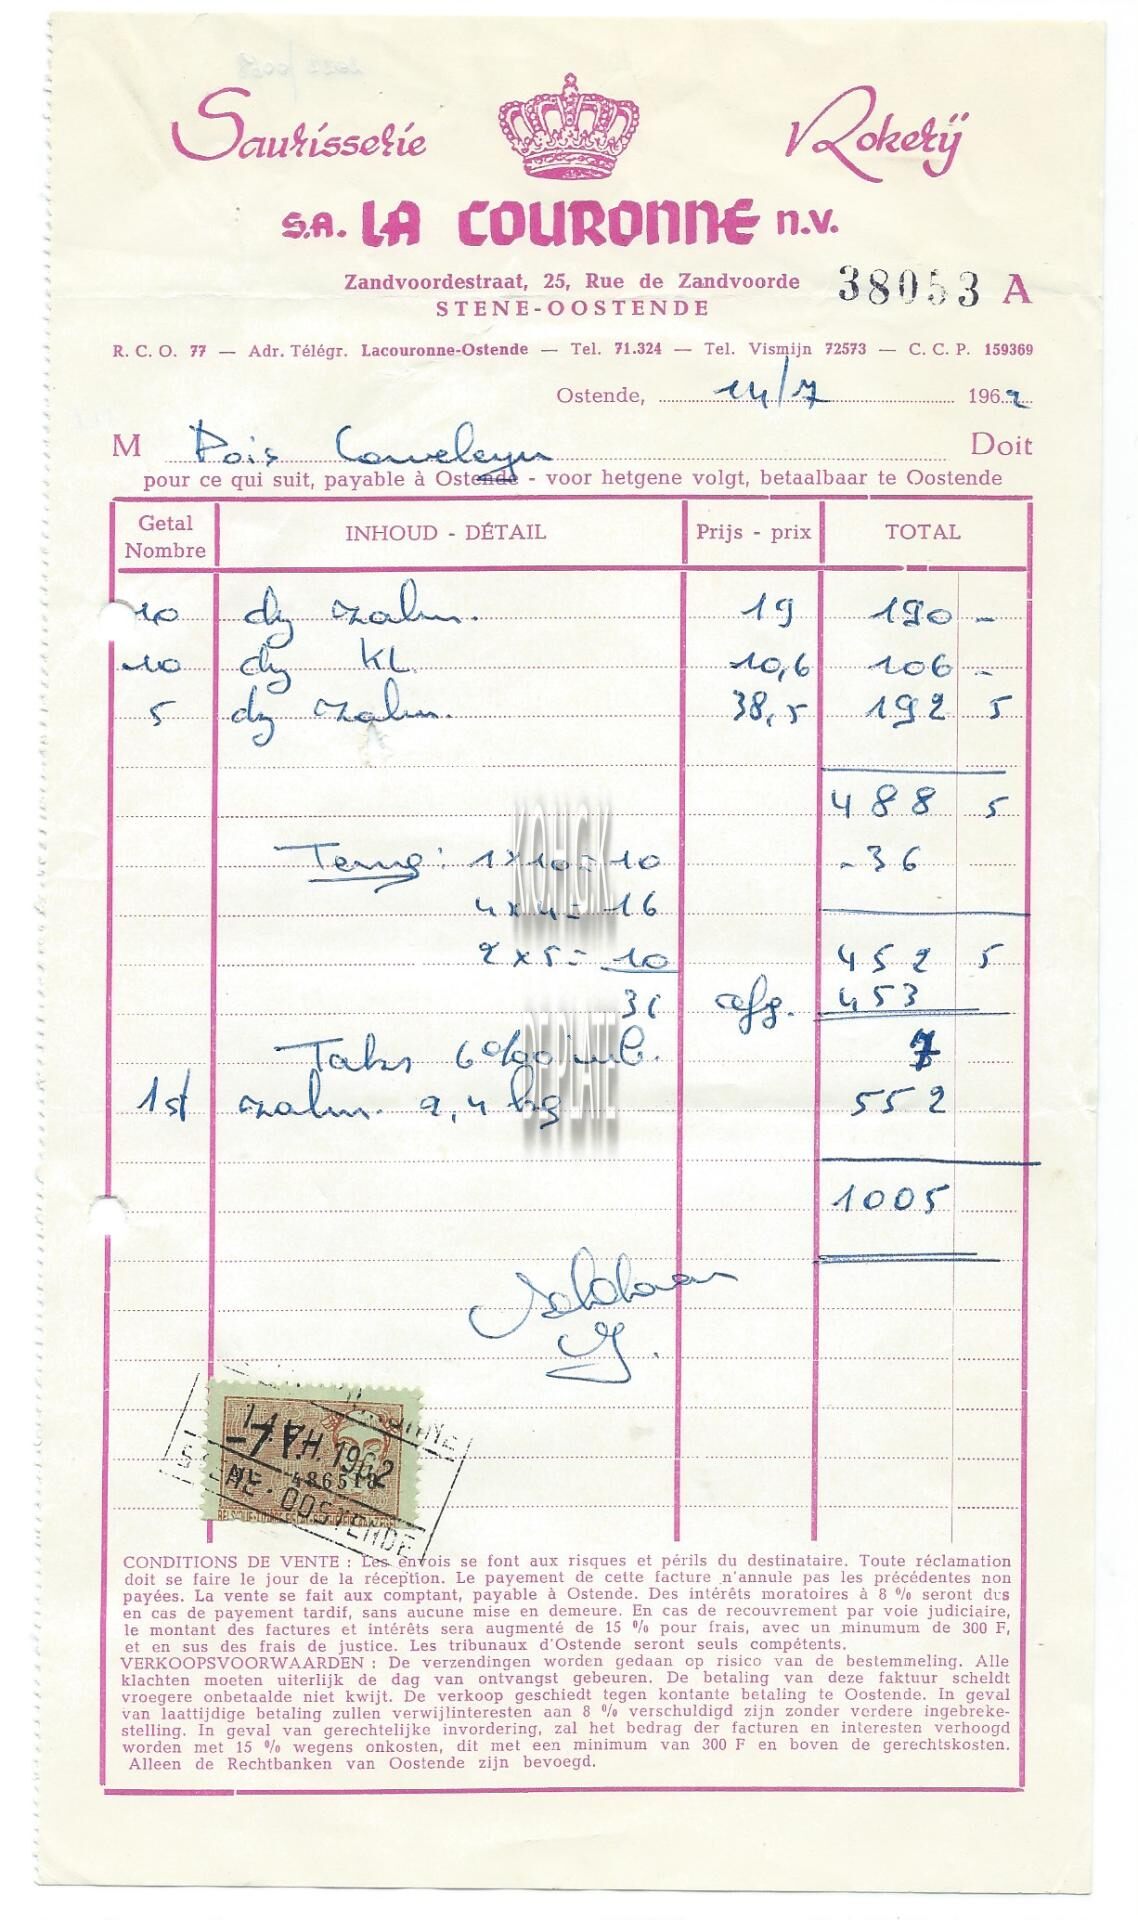 Saurisserie Rokerij
S.A. LA COURONNE N.V.
Zandvoordestraat, 25, Rue de Zandvoorde 38053 A
STENE-OOSTENDE
R. C. O. 77 — Adr. Télégr. Lacouronne-Ostende — Tel. 71.324 — Tel. Vismijn 72573 — C. C. P. 159369
Ostende, 14/7 1962
M Doit
pour ce qui suit, payable à Ostende - voor hetgene volgt, betaalbaar te Oostende
Getal Nombre INHOUD - DÉTAIL Prijs - prix TOTAL
10 dz zalm. 19 190 -
10 dz kl. 10,6 106 -
5 dz zalm. 38,5 192 5
488 5
Terug: 1 x 10 = 10 - 36
4 x 4 = 16
2 x 5 = 10 452 5
36 afg. 453
Taks 6 0/00 7
1 st zalm. 2,4 kg 552
1005
Voldaan
KOHGK
DE PLATE
1962
486510
STENE-OOSTENDE
CONDITIONS DE VENTE : Les envois se font aux risques et périls du destinataire. Toute réclamation
doit se faire le jour de la réception. Le payement de cette facture n'annule pas les précédentes non
payées. La vente se fait aux comptant, payable à Ostende. Des intérêts moratoires à 8 % seront dus
en cas de payement tardif, sans aucune mise en demeure. En cas de recouvrement par voie judiciaire,
le montant des factures et intérêts sera augmenté de 15 % pour frais, avec un minumum de 300 F,
et en sus des frais de justice. Les tribunaux d'Ostende seront seuls compétents.
VERKOOPSVOORWAARDEN : De verzendingen worden gedaan op risico van de bestemmeling. Alle
klachten moeten uiterlijk de dag van ontvangst gebeuren. De betaling van deze faktuur scheldt
vroegere onbetaalde niet kwijt. De verkoop geschiedt tegen kontante betaling te Oostende. In geval
van laattijdige betaling zullen verwijlinteresten aan 8 % verschuldigd zijn zonder verdere ingebreke-
stelling. In geval van gerechtelijke invordering, zal het bedrag der facturen en interesten verhoogd
worden met 15 % wegens onkosten, dit met een minimum van 300 F en boven de gerechtskosten.
Alleen de Rechtbanken van Oostende zijn bevoegd.